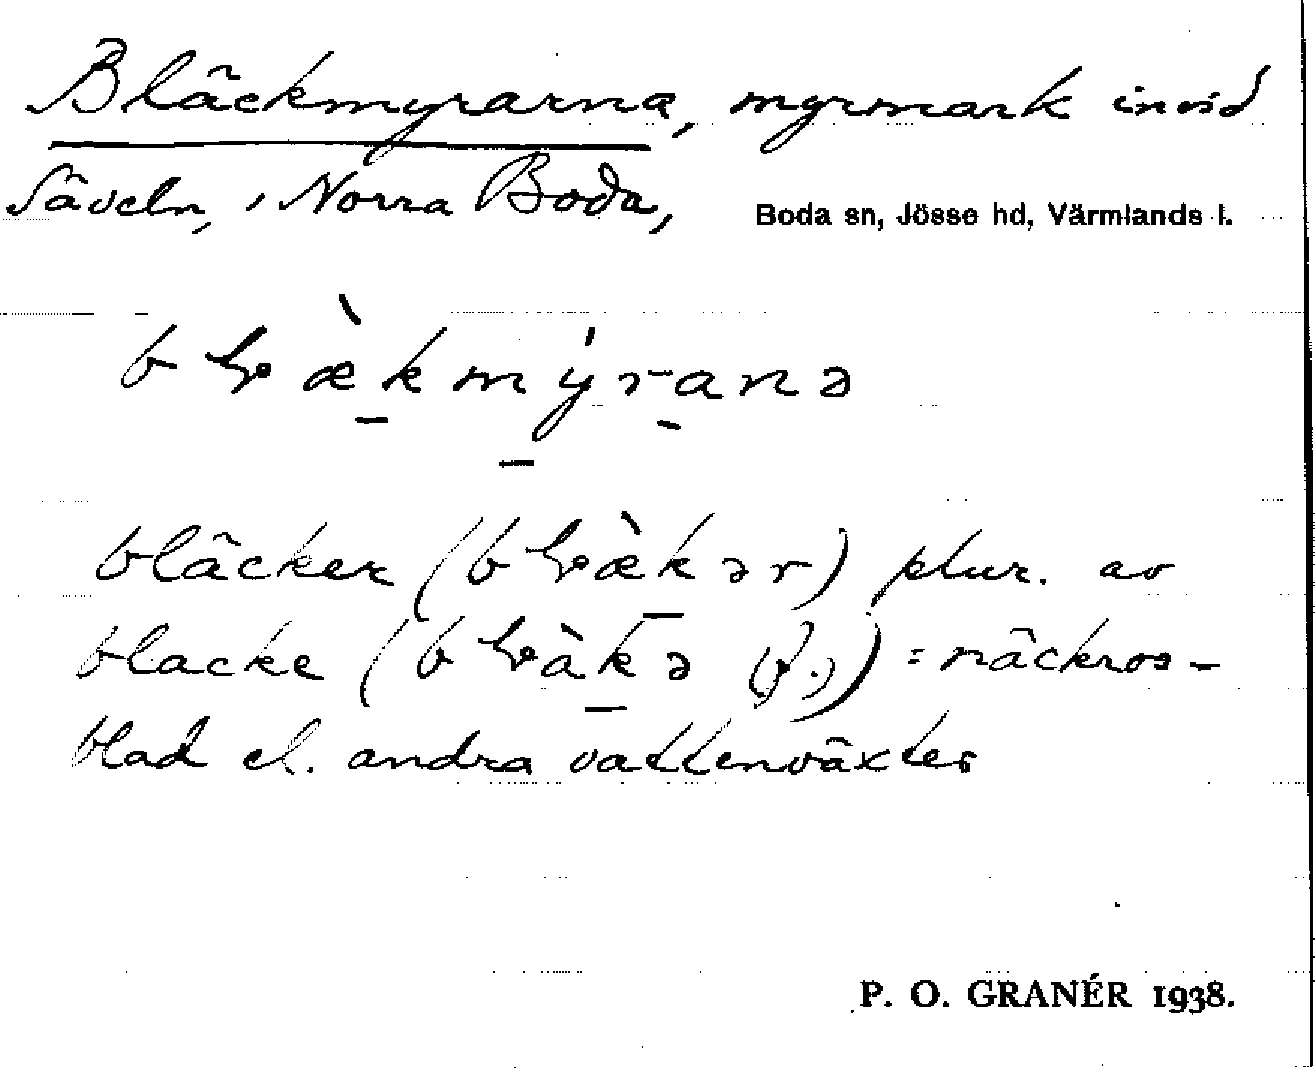 Bläckmyrarna, myrmark invid
Säveln, i Norra Boda, Boda sn, Jösse hd, Värmlands l.
bḷæ̀kmýranə
bläcker (bḷæ̀kər) plur. av
blacke (bḷàkə f.) = näckros-
blad el. andra vattenväxter
P. O. GRANÉR 1938.